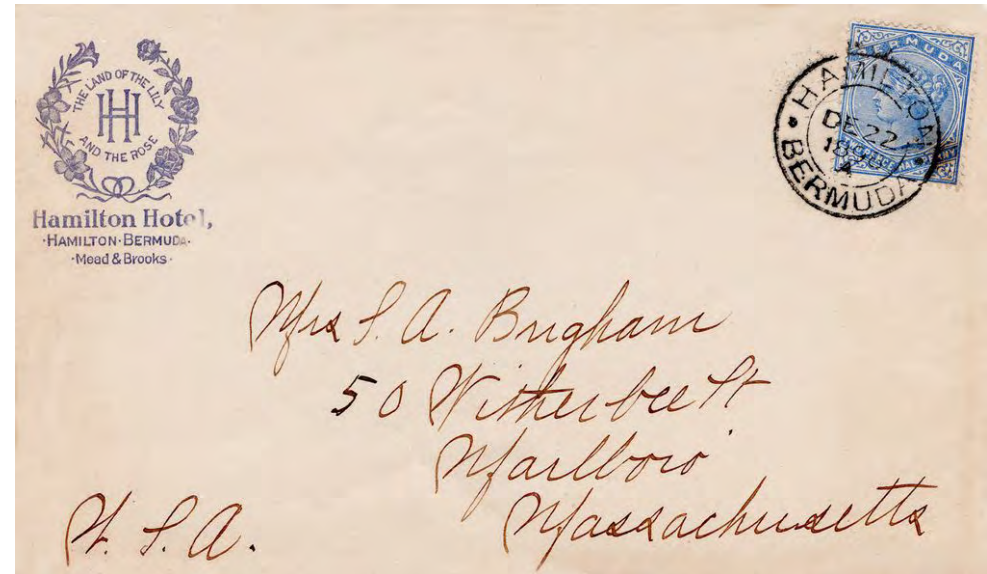 THE LAND OF THE LILY
HH
AND THE ROSE
Hamilton Hotel,
·HAMILTON·BERMUDA·
·Mead & Brooks·
BERMUDA
HAMILTON
DE 22
A
BERMUDA
Mrs S. A. Brigham
50 Witherbee St
Marlboro
Massachusetts
U. S. A.